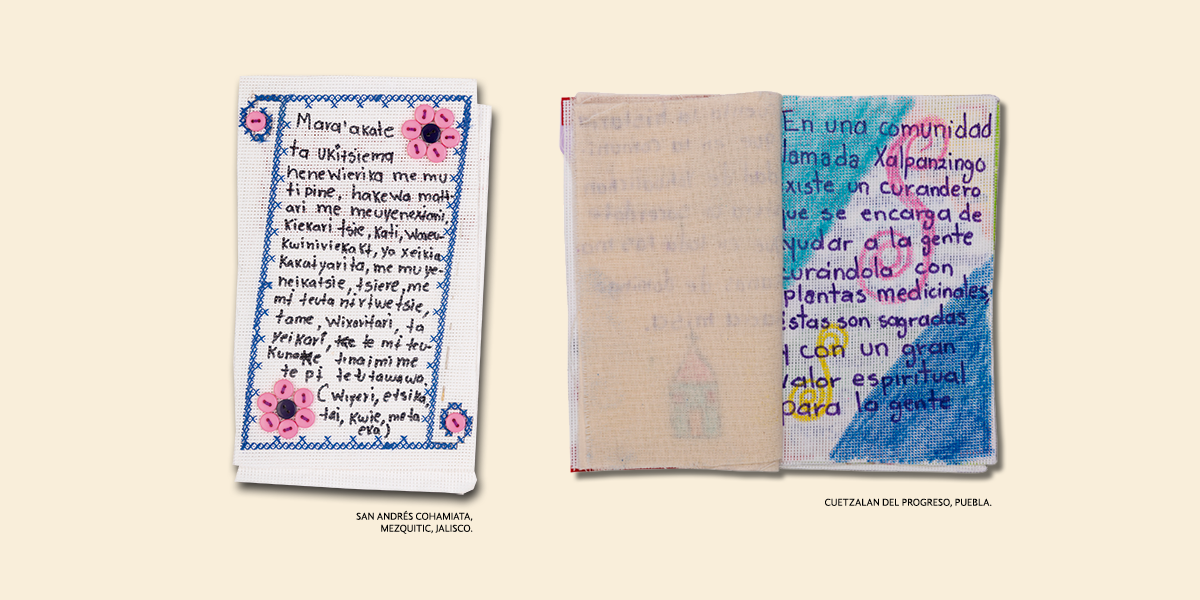 Mara'akate
ta ukitsiema
henewierika me mu
ti pine, hakewa matt-
ari me meuyenexiani,
kiekari tsie, kati,
kwinivieka kt, ya xeikia
kakatyarita, me mu ye-
neikatsie, tsiere, me
mt teuta ntrtwetsie,
tame, Wixaritari, ta
yeikari, te mt teu-
tinaimime
te pt tetutawawa.
(wiyeri, etsika,
tai, kwie, meta
eka)
SAN ANDRÉS COHAMIATA,
MEZQUITIC, JALISCO.
En una comunidad
lamada Xalpanzingo
xiste un curandero
ue se encarga de
yudar a la gente
curándola con
plantas medicinales,
éstas son sagradas
y con un gran
valor espiritual
para la gente
CUETZALAN DEL PROGRESO, PUEBLA.